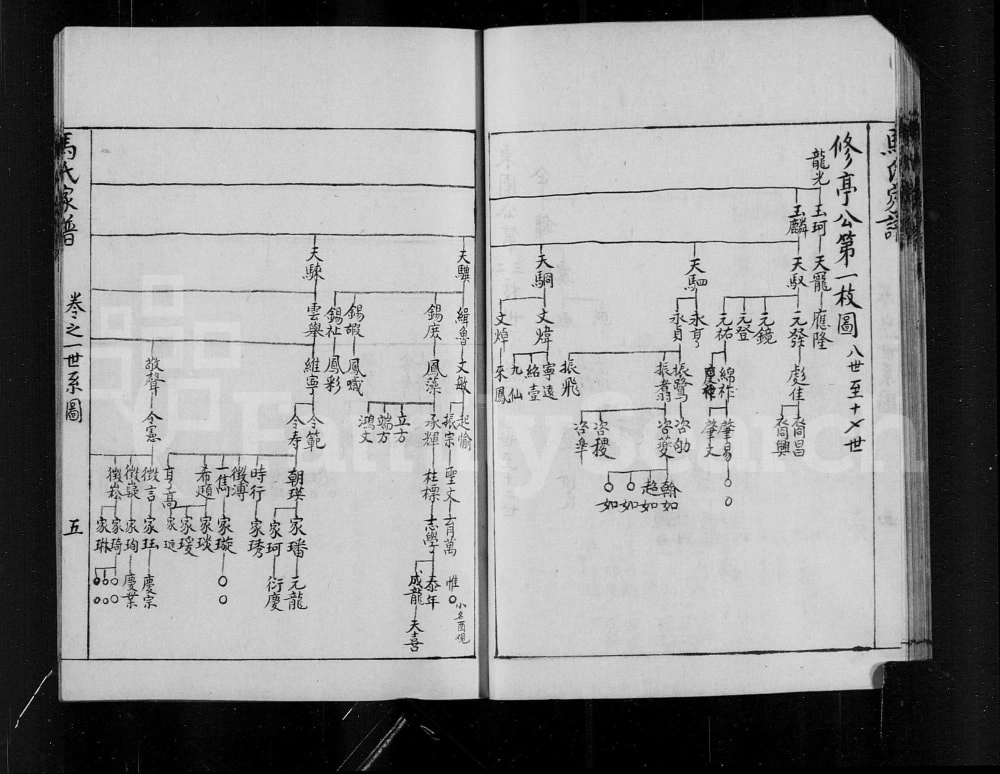 馬氏家譜
修亭公第一枝圖 八世至十七世
龍光
玉珂
玉麟
天寵
天馭
天駟
天駉
應隆
元發
元鏡
元登
元祐
永亨
永貞
文煒
文焯
彪佳
綿祚
慶祚
振鷺
振翥
振飛
寧遠
紹壹
九仙
來鳳
裔昌
裔興
肇易
肇文
咨劬
咨夔
咨稷
咨皋
○
○
翰如
趙如
○如
○如
天驥
天騋
緝魯
錫庶
錫嘏
錫祉
雲舉
文敏
鳳藻
鳳曦
鳳彩
維寧
敬聲
起愉
振宗
承輝
立方
端方
鴻文
令範
令壽
令憲
聖文
柱標
朝瑛
時行
徵溥
一雋
希趙
耳高
徵言
徵疑
徵崧
育萬
志學
家璠
家珂
家琇
家璇
家琰
家瑗
家遠
家珏
家珣
家琦
家琳
惟○
小名酉硯
泰年
成龍
天喜
元龍
衍慶
○
○
慶宗
慶業
○○○
○○○
馬氏家譜
卷之一世系圖
五
FamilySearch